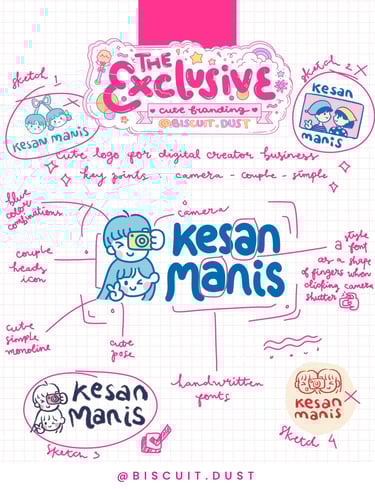 THE
EXCLUSIVE
cute branding
@BISCUIT.DUST
sketch 1
kesan manis
sketch 2
kesan
manis
cute logo for digital creator business
key points - camera - couple - simple
blue
color
combinations
camera
kesan
manis
couple
heads
icon
style
a font
as a shape
of fingers when
clicking camera
shutter
cute
simple
monoline
cute
pose
handwritten
fonts
kesan
manis
sketch 3
kesan
manis
sketch 4
@BISCUIT.DUST